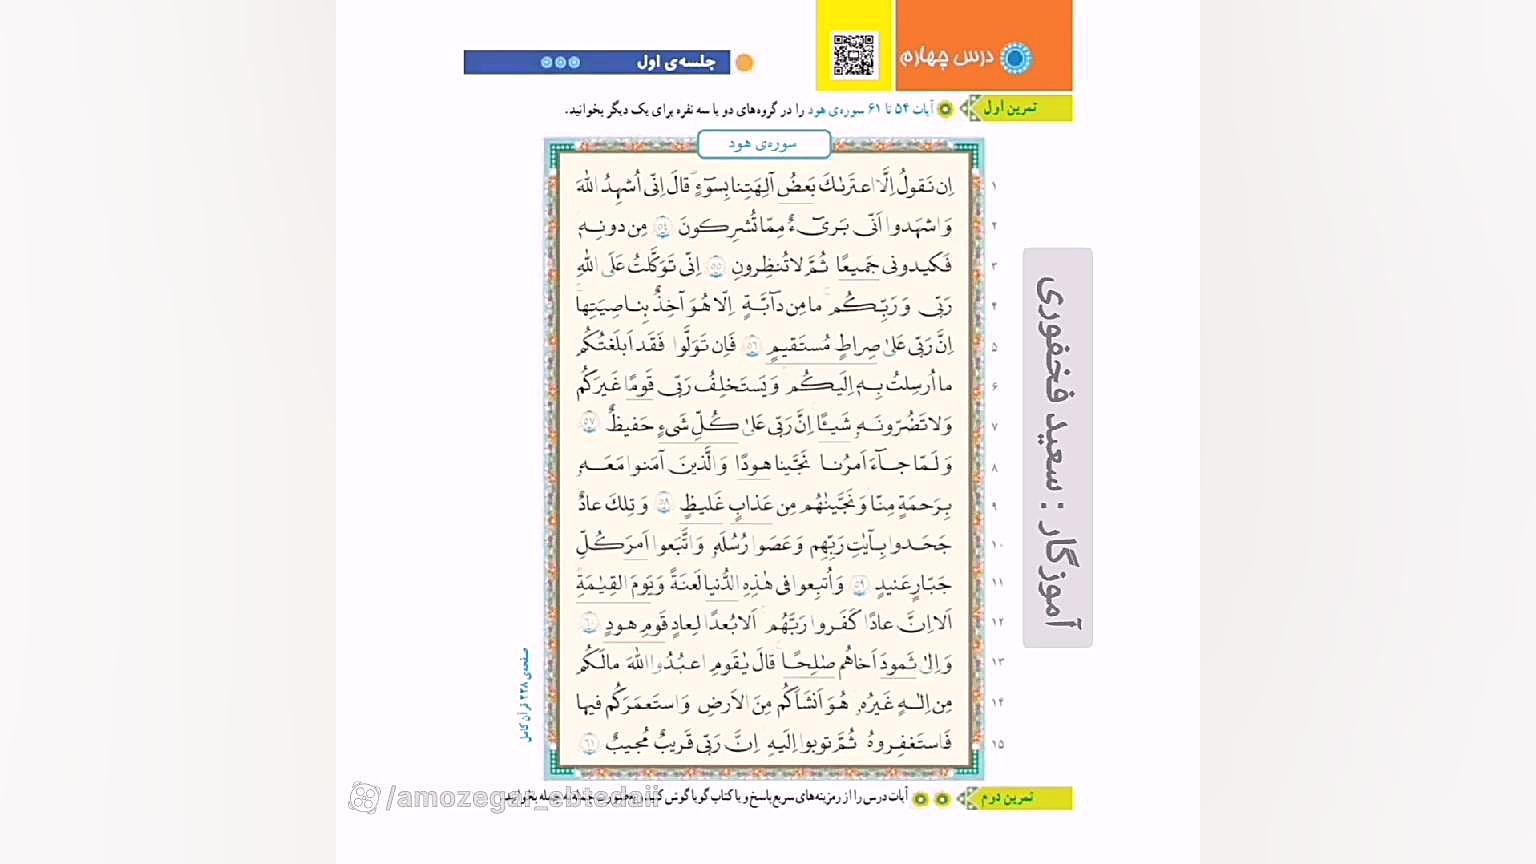 درس چهارم
جلسه‌ی اول
تمرین اول
آیات ۵۴ تا ۶۱ سوره‌ی هود را در گروه‌های دو یا سه نفره برای یک دیگر بخوانید.
سوره‌ی هود
۱ اِن نَقولُ اِلَّا اعتَرىٰكَ بَعضُ آلِهَتِنا بِسوٓءٍ قالَ اِنّى اُشهِدُ اللهَ
۲ وَ اشهَدوا اَنّى بَرىٓءٌ مِمّا تُشرِكونَ ۵۴ مِن دونِهٖ
۳ فَكيدونى جَميعًا ثُمَّ لا تُنظِرونِ ۵۵ اِنّى تَوَكَّلتُ عَلَى اللهِ
۴ رَبّى وَ رَبِّكُم ما مِن دآبَّةٍ اِلّا هُوَ آخِذٌ بِناصِيَتِها
۵ اِنَّ رَبّى عَلىٰ صِراطٍ مُستَقيمٍ ۵۶ فَاِن تَوَلَّوا فَقَد اَبلَغتُكُم
۶ ما اُرسِلتُ بِهٖ اِلَيكُم وَ يَستَخلِفُ رَبّى قَومًا غَيرَكُم
۷ وَ لا تَضُرّونَهٗ شَيئًا اِنَّ رَبّى عَلىٰ كُلِّ شَىءٍ حَفيظٌ ۵۷
۸ وَ لَمّا جآءَ اَمرُنا نَجَّينا هودًا وَ الَّذينَ آمَنوا مَعَهٗ
۹ بِرَحمَةٍ مِنّا وَ نَجَّيناهُم مِن عَذابٍ غَليظٍ ۵۸ وَ تِلكَ عادٌ
۱۰ جَحَدوا بِآياتِ رَبِّهِم وَ عَصَوا رُسُلَهٗ وَ اتَّبَعوا اَمرَ كُلِّ
۱۱ جَبّارٍ عَنيدٍ ۵۹ وَ اُتبِعوا فى هٰذِهِ الدُّنيا لَعنَةً وَ يَومَ القِيٰمَةِ
۱۲ اَلا اِنَّ عادًا كَفَروا رَبَّهُم اَلا بُعدًا لِعادٍ قَومِ هودٍ ۶۰
۱۳ وَ اِلىٰ ثَمودَ اَخاهُم صٰلِحًا قالَ يٰقَومِ اعبُدُوا اللهَ ما لَكُم
۱۴ مِن اِلٰهٍ غَيرُهٗ هُوَ اَنشَاَكُم مِنَ الاَرضِ وَ استَعمَرَكُم فيها
۱۵ فَاستَغفِروهُ ثُمَّ توبوا اِلَيهِ اِنَّ رَبّى قَريبٌ مُجيبٌ ۶۱
صفحه‌ی ۲۲۸ قرآن کامل
آموزگار : سعید فخفوری
تمرین دوم
آیات درس را از رمزینه‌های سریع‌پاسخ و یا کتاب گویا گوش کنید
/amozegar_ebtedaii